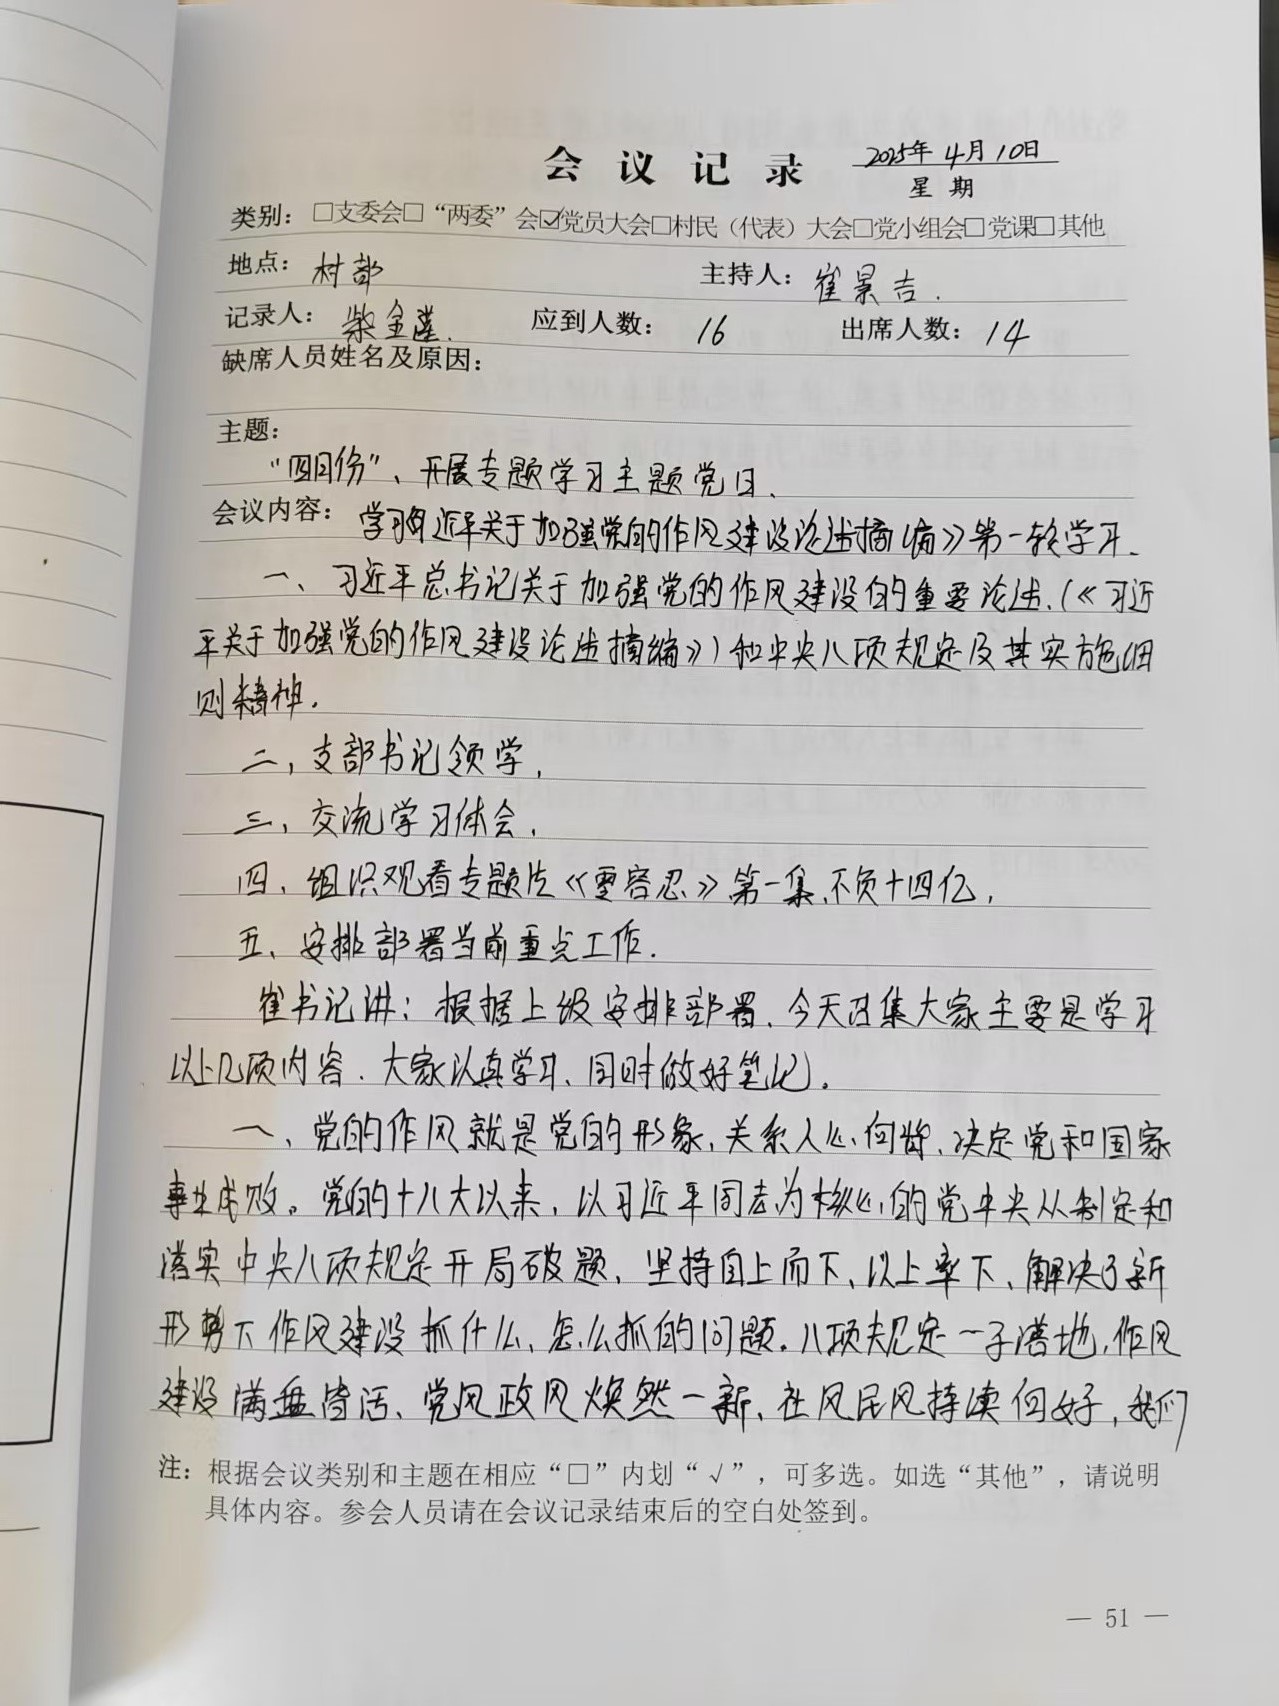 会议记录 2025年4月10日
星期
类别：□支委会□“两委”会☑党员大会□村民（代表）大会□党小组会□党课□其他
地点：村部 主持人：崔景吉.
记录人：柴金 应到人数：16 出席人数：14
缺席人员姓名及原因：
主题：
“四月份”、开展专题学习主题党日、
会议内容：学习近平关于加强党的作风建设论述摘编》第一轮学习、
一、习近平总书记关于加强党的作风建设的重要论述、（《习近
平关于加强党的作风建设论述摘编》）和中央八项规定及其实施细
则精神.
二，支部书记领学，
三，交流学习体会，
四、组织观看专题片《零容忍》第一集、不负十四亿，
五、安排部署当前重点工作.
崔书记讲：根据上级安排部署、今天召集大家主要是学习
以上几项内容. 大家认真学习、同时做好笔记。
一、党的作风就是党的形象，关系人心向背、决定党和国家
事业成败。党的十八大以来，以习近平同志为核心的党中央从制定和
落实中央八项规定开局破题、坚持自上而下、以上率下、解决了新
形势下作风建设抓什么、怎么抓的问题.八项规定一子落地，作风
建设满盘皆活、党风政风焕然一新、社风民风持续向好，我们
注：根据会议类别和主题在相应“□”内划“√”，可多选。如选“其他”，请说明
具体内容。参会人员请在会议记录结束后的空白处签到。
— 51 —